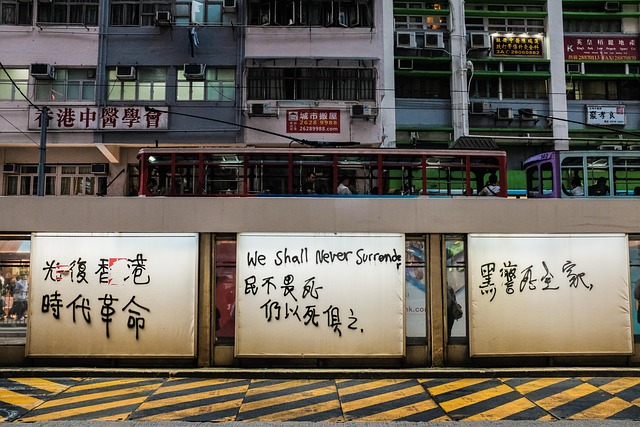 香港中醫學會
城市搬屋
2628 9988
26289988.com
光復香港
時代革命
We shall Never Surrender
民不畏死
何以死俱之.
黑警死全家.